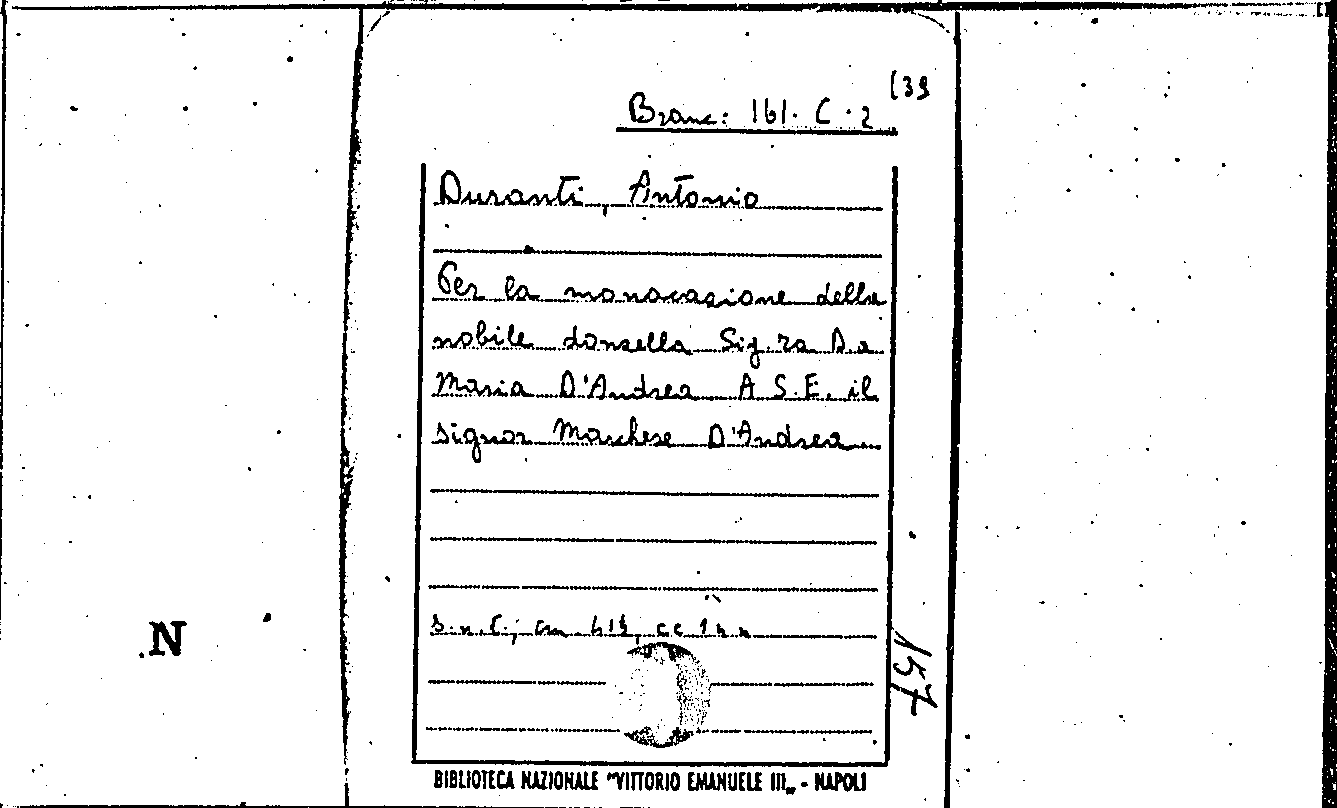 (39
Branc: 161. C. 2
Duranti, Antonio
Per la monacazione della
nobile donzella Sig.ra D.a
Maria D'Andrea A S.E. il
signor Marchese D'Andrea
s.n.t.; cm.
157
N
BIBLIOTECA NAZIONALE "VITTORIO EMANUELE III„ - NAPOLI